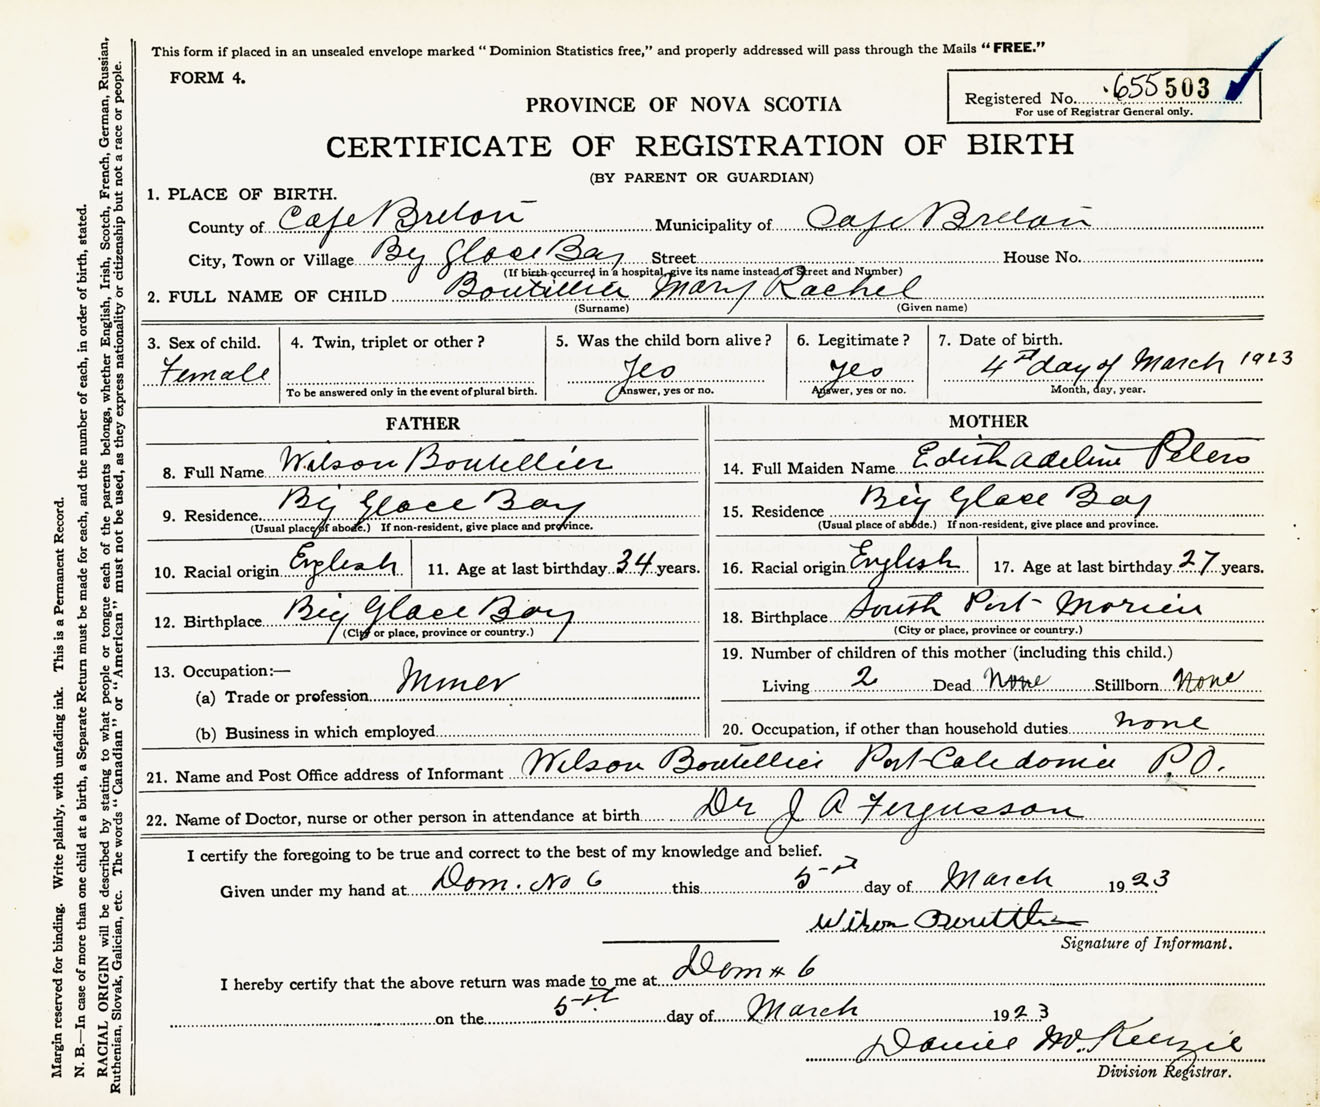 This form if placed in an unsealed envelope marked "Dominion Statistics free," and properly addressed will pass through the Mails "FREE."
FORM 4.
Registered No. 655503
For use of Registrar General only.
PROVINCE OF NOVA SCOTIA
CERTIFICATE OF REGISTRATION OF BIRTH
(BY PARENT OR GUARDIAN)
1. PLACE OF BIRTH.
County of Cape Breton Municipality of Cape Breton
City, Town or Village Big Glace Bay Street House No.
(If birth occurred in a hospital, give its name instead of Street and Number)
2. FULL NAME OF CHILD Boutillier Mary Rachel
(Surname) (Given name)
3. Sex of child. 4. Twin, triplet or other? 5. Was the child born alive? 6. Legitimate? 7. Date of birth.
Female Yes Yes 4th day of March 1923
To be answered only in the event of plural birth. Answer, yes or no. Answer, yes or no. Month, day, year.
FATHER
8. Full Name Wilson Boutellier
9. Residence Big Glace Bay
(Usual place of abode.) If non-resident, give place and province.
10. Racial origin English 11. Age at last birthday 34 years.
12. Birthplace Big Glace Bay
(City or place, province or country.)
13. Occupation:—
(a) Trade or profession Miner
(b) Business in which employed
MOTHER
14. Full Maiden Name Edith Adeline Peters
15. Residence Big Glace Bay
(Usual place of abode.) If non-resident, give place and province.
16. Racial origin English 17. Age at last birthday 27 years.
18. Birthplace South Port Morien
(City or place, province or country.)
19. Number of children of this mother (including this child.)
Living 2 Dead None Stillborn None
20. Occupation, if other than household duties none
21. Name and Post Office address of Informant Wilson Boutellier Port Caledonia P.O.
22. Name of Doctor, nurse or other person in attendance at birth Dr J A Fergusson
I certify the foregoing to be true and correct to the best of my knowledge and belief.
Given under my hand at Dom. No 6 this 5th day of March 1923
Wilson Bouttlier
Signature of Informant.
I hereby certify that the above return was made to me at Dom # 6
on the 5th day of March 1923
Daniel McKenzie
Division Registrar.
Margin reserved for binding. Write plainly, with unfading ink. This is a Permanent Record.
N. B.—In case of more than one child at a birth, a Separate Return must be made for each, and the number of each, in order of birth, stated.
RACIAL ORIGIN will be described by stating to what people or tongue each of the parents belongs, whether English, Irish, Scotch, French, German, Russian,
Ruthenian, Slovak, Galician, etc. The words "Canadian" or "American" must not be used, as they express nationality or citizenship but not a race or people.